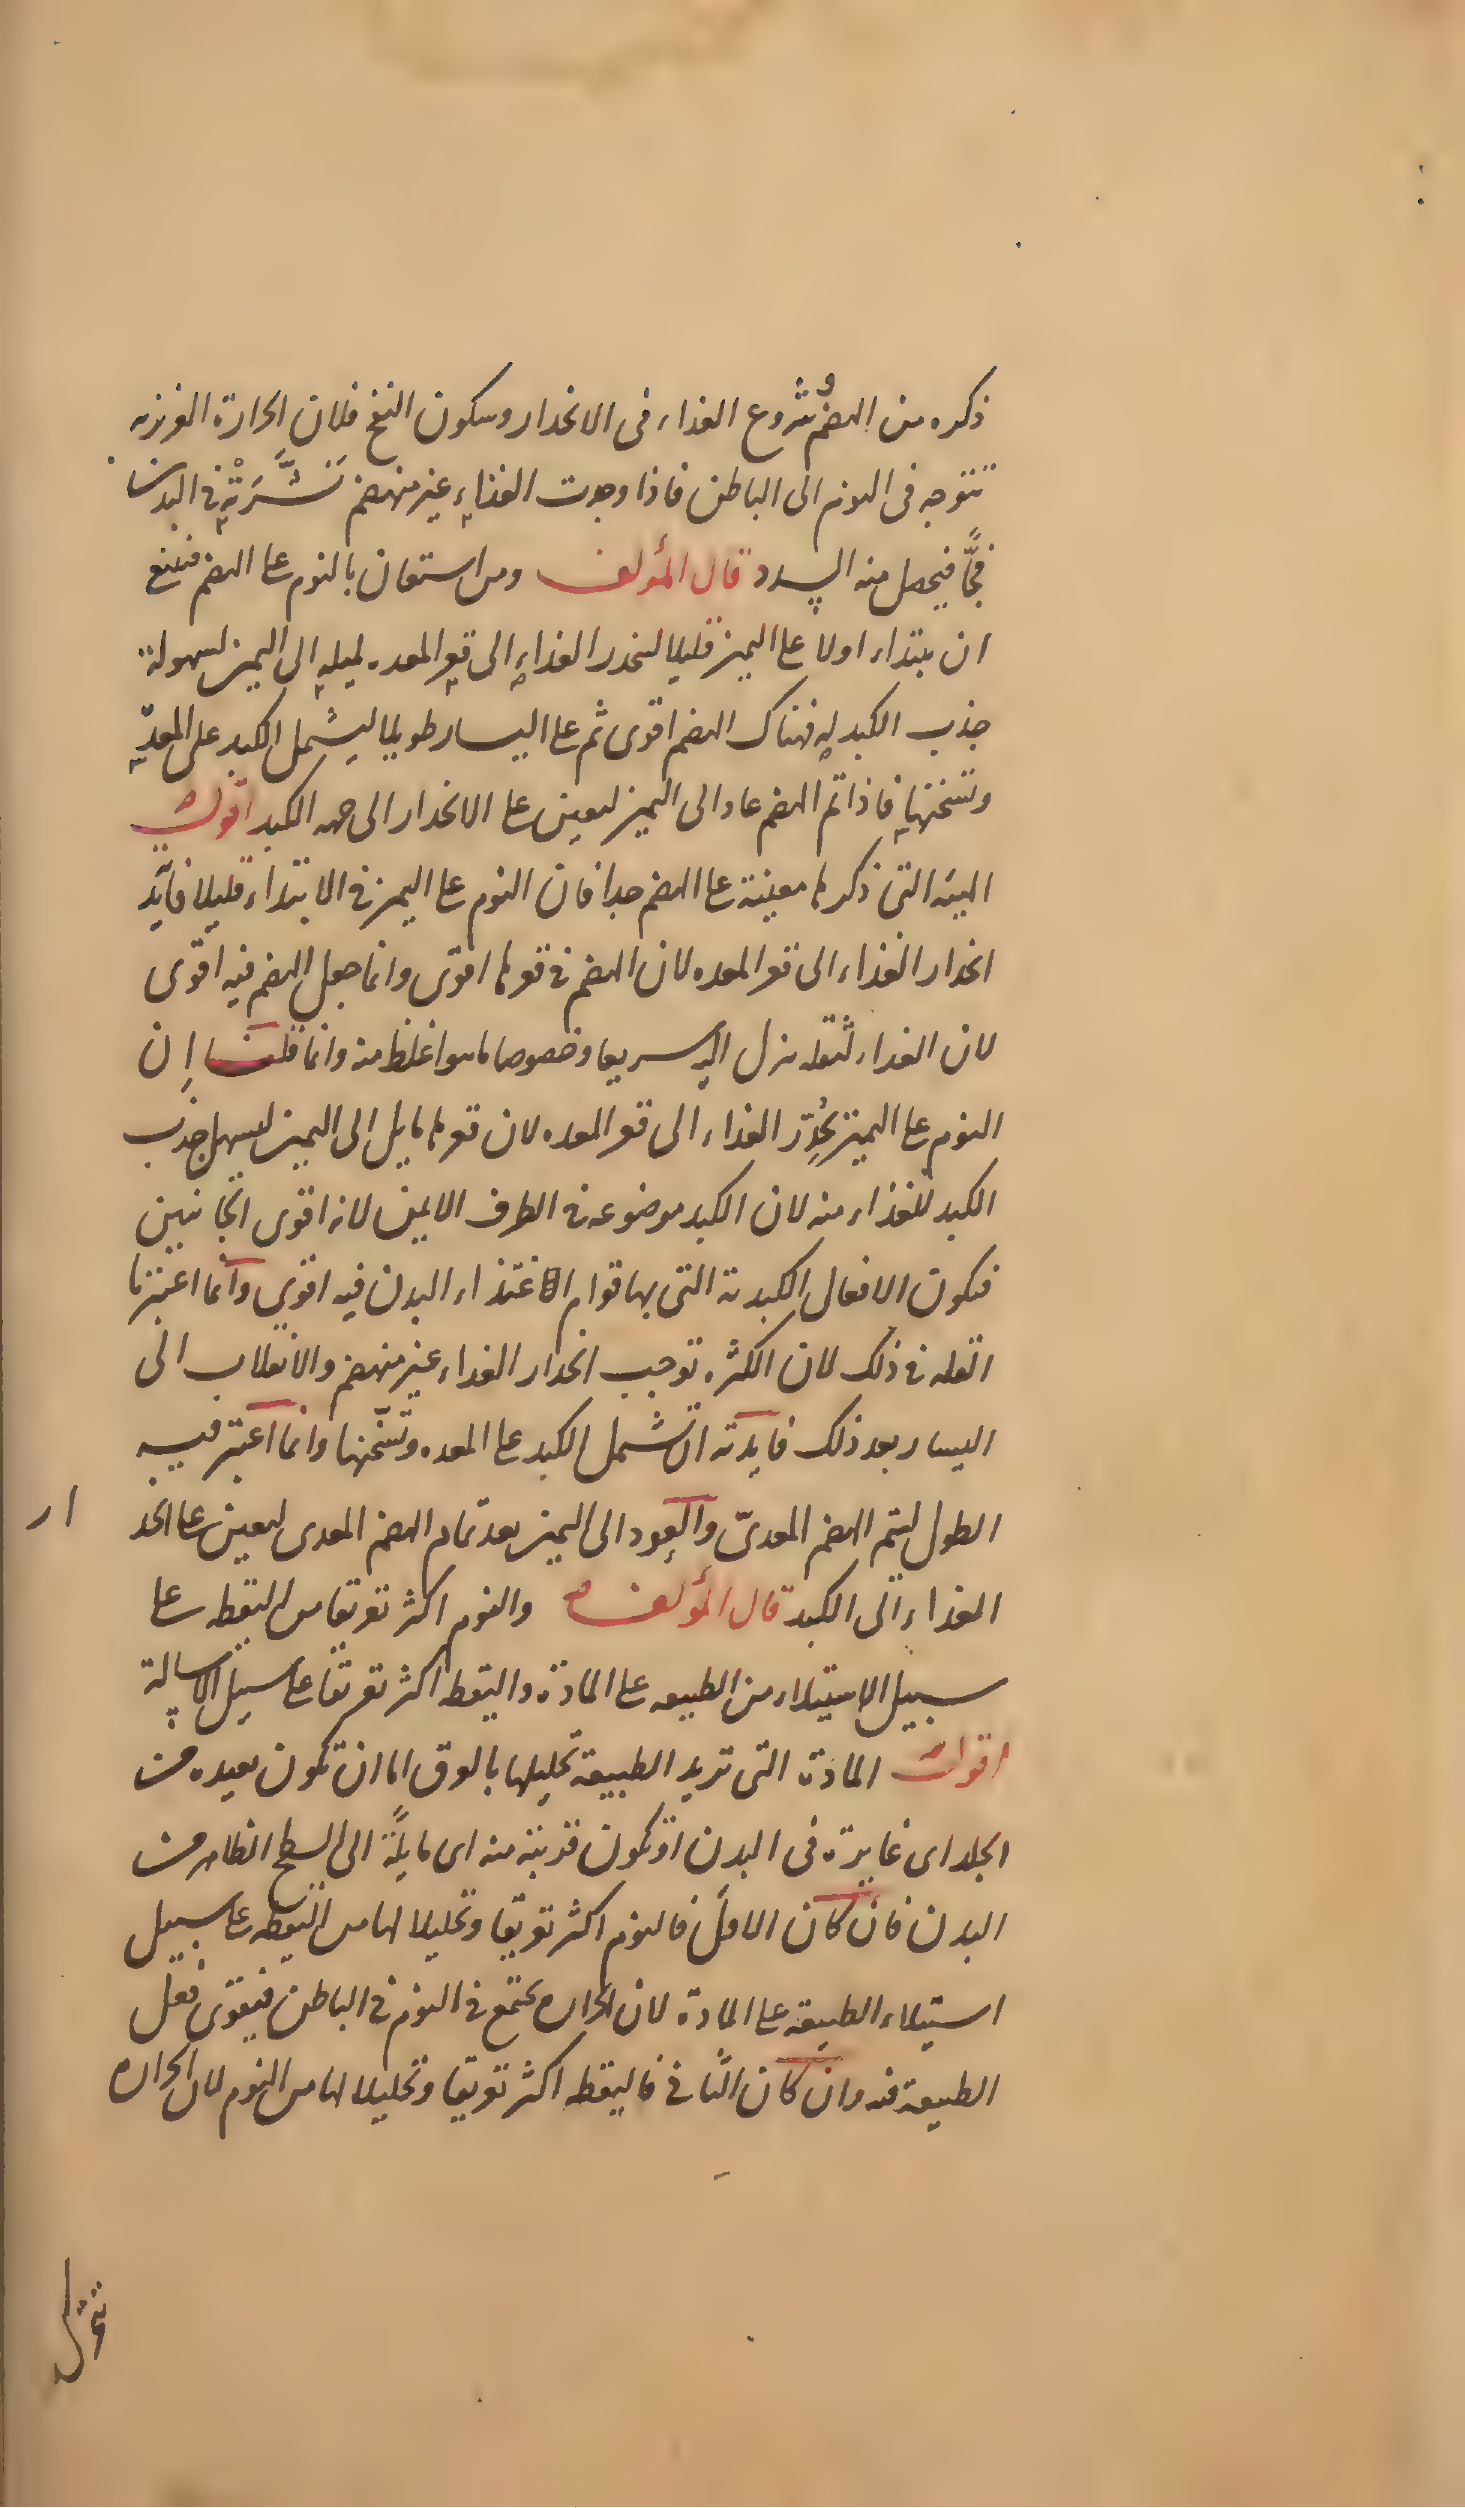 ذكره من الهضم وشروع الغذاء فى الانحدار وسكون النفخ فلان الحرارة الغريزيه
تتوجه فى النوم الى الباطن فاذا وجدت الغذاء غير منهضم نَشَّرَتْه فى البدن
فِجًّا فيحصل منه السدد قال المؤلف ومن استعان بالنوم على الهضم فينبغى
ان يبتداء اولا على اليمين قليلا لينحدر الغذاء الى قعر المعده لميله الى اليمين لسهولة
جذب الكبد له فهناك الهضم اقوى ثم على اليسار طويلا ليشمل الكبد على المعدة
وتسخنها فاذا تم الهضم عاد الى اليمين ليعين على الانحدار الى جهه الكبد اقول
الهيئه التى ذكرها معينة على الهضم جدا فان النوم على اليمين فى الابتداء قليلا فايدته
انحدار الغذاء الى قعر المعده لان الهضم فى قعرها اقوى وانما جعل الهضم فيه اقوى
لان الغذاء لثقله ينزل اليه سريعا وخصوصا ما هو اغلظ منه وانما قلنا إن
النوم على اليمين يُحدِّر الغذاء الى قعر المعده لان قعرها مايل الى اليمين ليسهل جذب
الكبد للغذاء منه لان الكبد موضوعه فى الطرف الايمن لانه اقوى الجانبين
فيكون الافعال الكبدية التى بها قوام اغتذاء البدن فيه اقوى وانما اعتبرنا
القله فى ذلك لان الكثره توجب انحدار الغذاء غير منهضم والانقلاب الى
اليسار بعد ذلك فايدته ان تشمل الكبد على المعده وتسخّنها وانما اعتبر فيه
الطول ليتم الهضم المعدىّ والعود الى اليمين بعد تمام الهضم المعدى ليعين على انحد
ار
الغذاء الى الكبد قال المؤلف والنوم اكثر تعريقا من اليقظه على
سبيل الاستيلاء من الطبيعه على المادة واليقظه اكثر تعريقا على سبيل الاسالة
اقول المادة التى تريد الطبيعة تحليلها بالعرق اما ان تكون بعيده من
الجلد اى غايرة فى البدن او تكون قريبة منه اى مايلةً الى السطح الظاهر من
البدن فان كان الاول فالنوم اكثر تعريقا وتحليلا لها من اليقظه على سبيل
استيلاء الطبيعة على المادة لان الحراره تجتمع فى النوم فى الباطن فيقوى فعل
الطبيعة فيه وان كان الثانى فاليقظه اكثر تعريقا وتحليلا لها من النوم لان الحراره
تتحرك